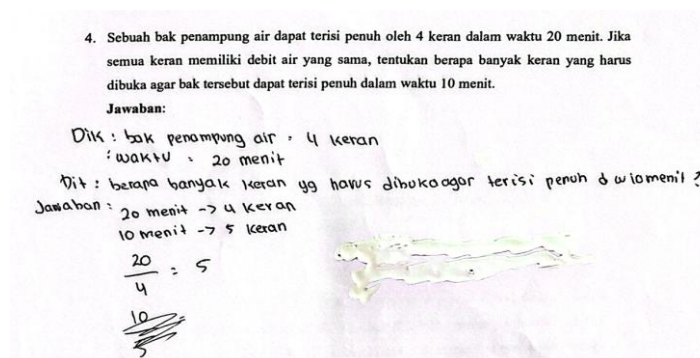 4. Sebuah bak penampung air dapat terisi penuh oleh 4 keran dalam waktu 20 menit. Jika
semua keran memiliki debit air yang sama, tentukan berapa banyak keran yang harus
dibuka agar bak tersebut dapat terisi penuh dalam waktu 10 menit.
Jawaban:
Dik : bak penampung air = 4 keran
: waktu = 20 menit
Dit : berapa banyak keran yg harus dibuka agar terisi penuh d w 10 menit ?
Jawaban : 20 menit -> 4 keran
10 menit -> 5 keran
20
4
= 5
10